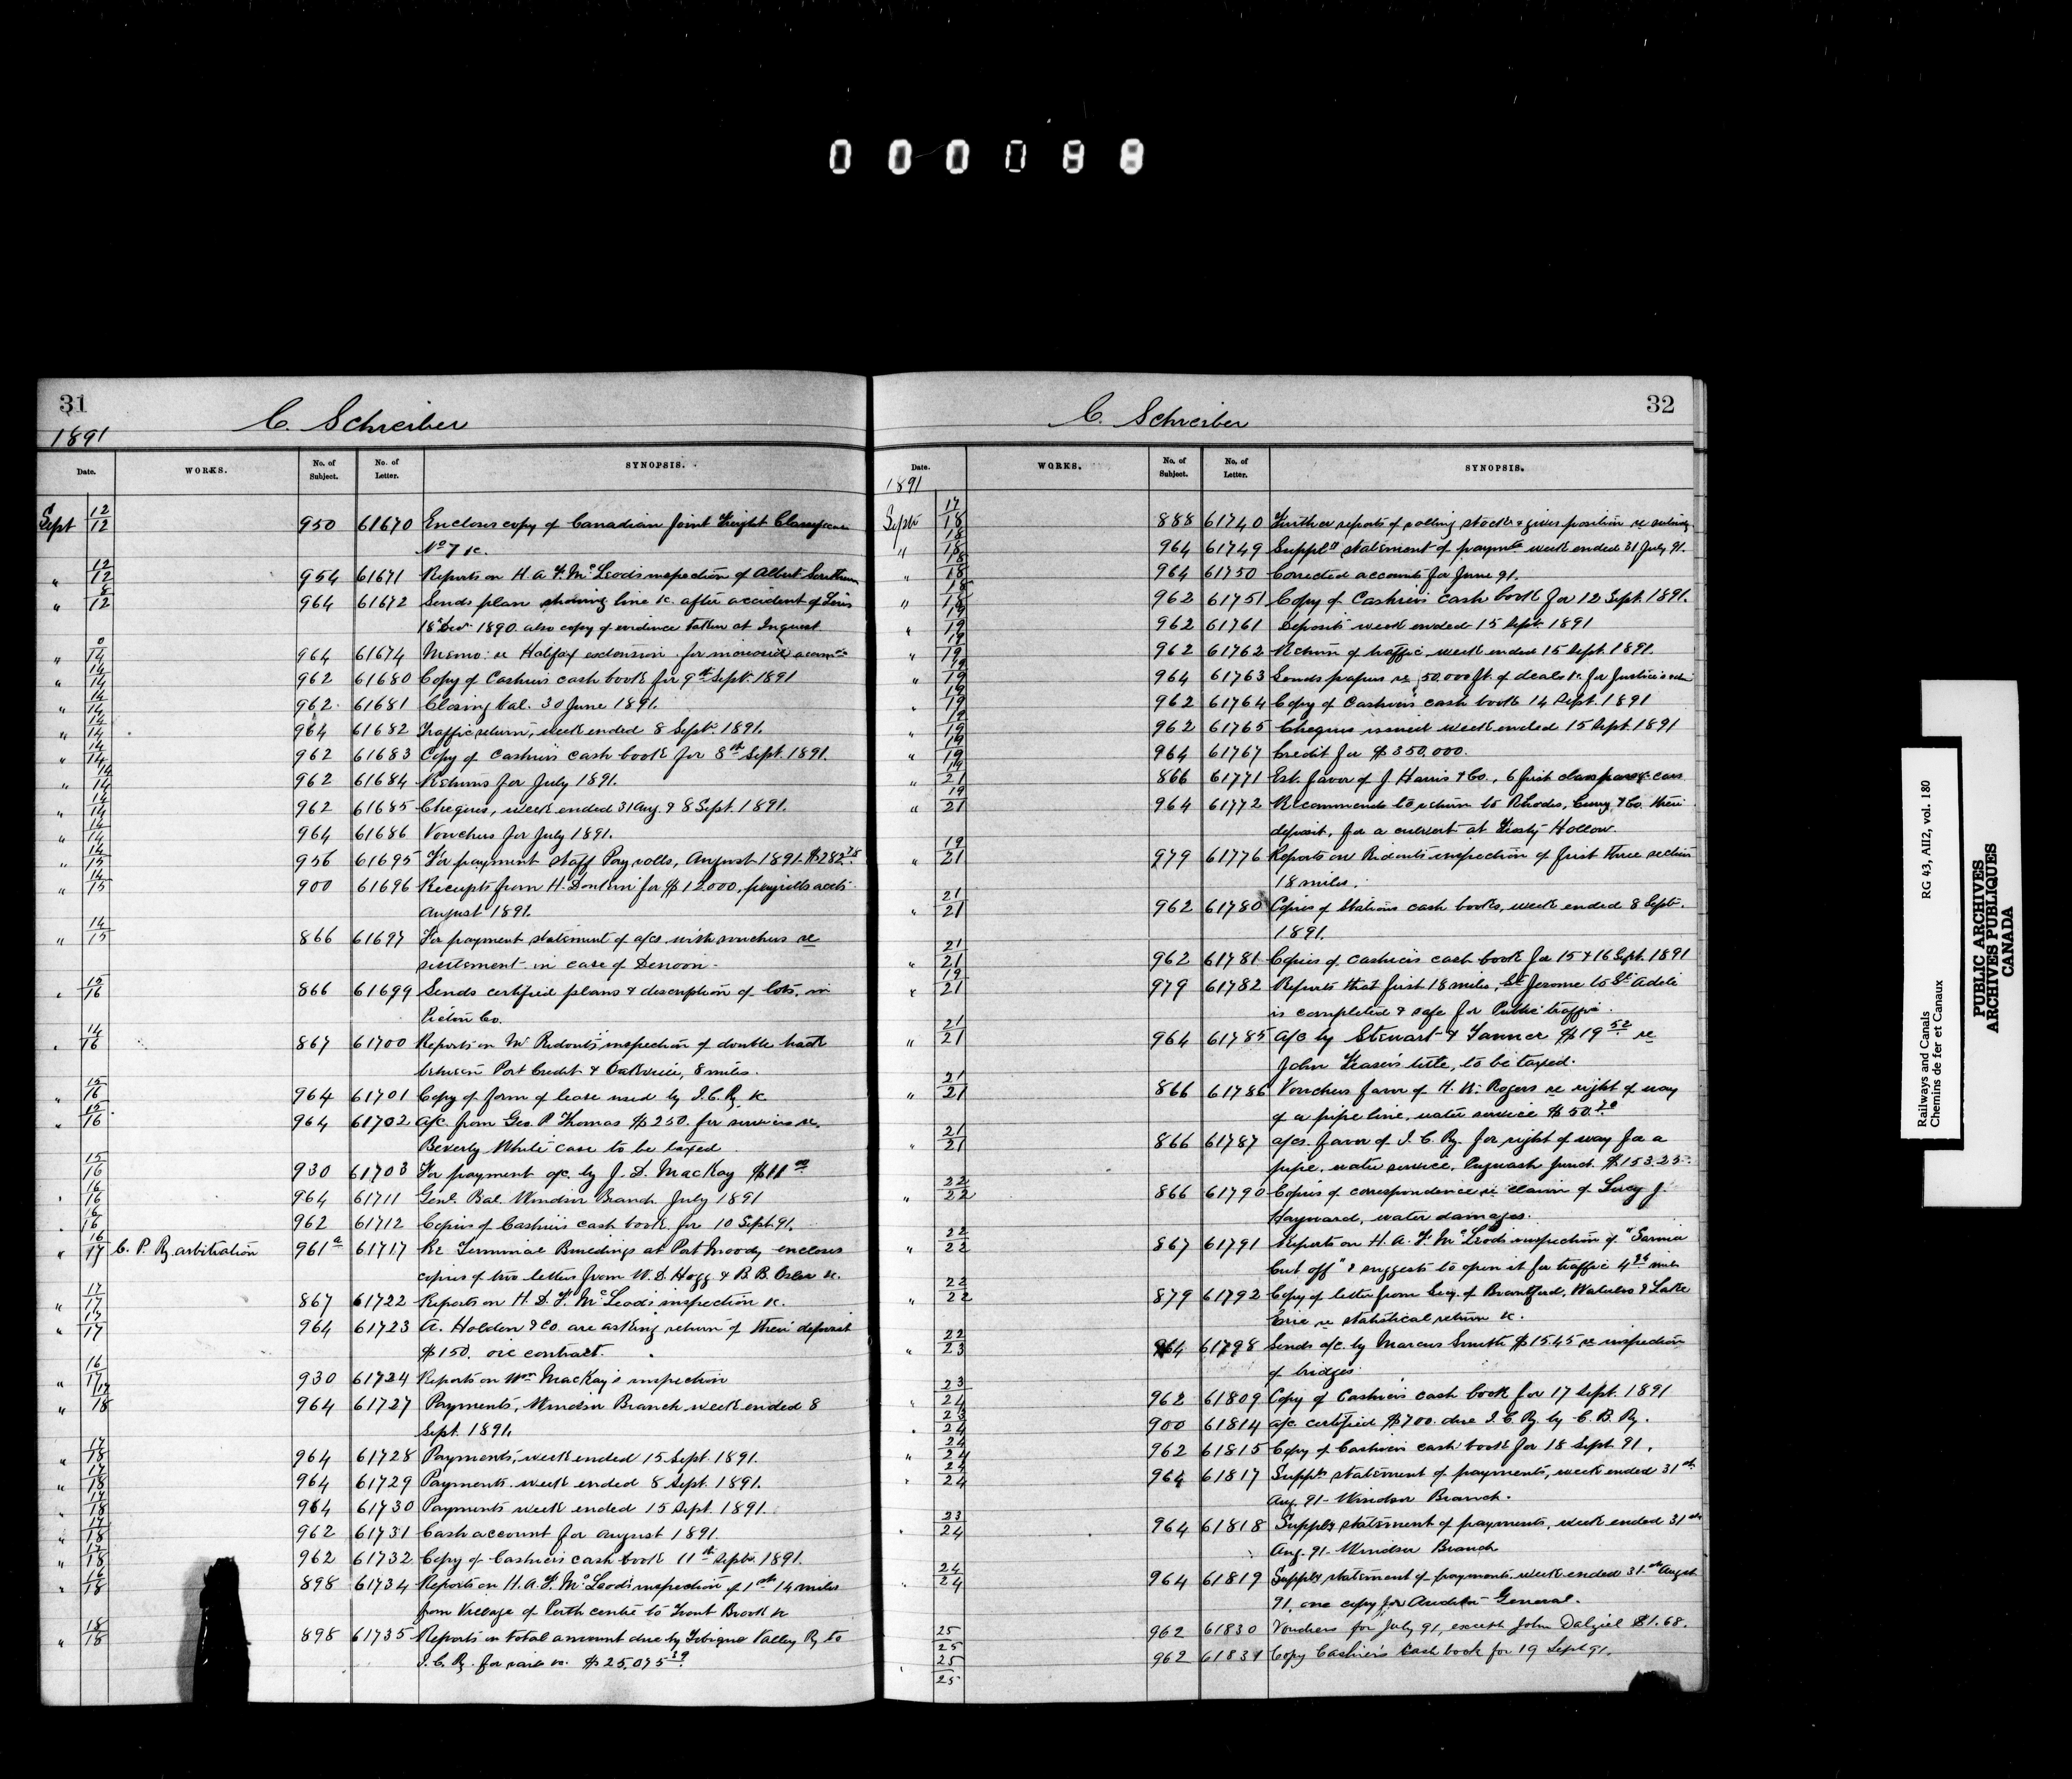 0 0 0 0 8 8
31
1891
C. Schreiber
Date. WORKS. No. of Subject. No. of Letter. SYNOPSIS.
Sept 12/12 950 61670 Encloses copy of Canadian Joint Freight Classification
No 7 &c.
" 12/12 954 61671 Reports on H. A. F. McLeod's inspection of Albert Southern
" 8/12 964 61672 Sends plan showing line &c. after accident of
18 Decr 1890 also copy of evidence taken at Inquest
" 14 964 61674 Memo: re Halifax extension for increased accomn
" 14/14 962 61680 Copy of Cashier's cash book for 9th Sept. 1891
" 14/14 962 61681 Closing bal. 30 June 1891.
" 14/14 964 61682 Traffic return, week ended 8 Sept. 1891.
" 14/14 962 61683 Copy of Cashier's cash book for 8th Sept. 1891.
" 14/14 962 61684 Returns for July 1891.
" 14/14 962 61685 Cheques, week ended 31 Aug. & 8 Sept. 1891.
" 14/14 964 61686 Vouchers for July 1891.
" 14/15 956 61695 For payment staff Pay rolls, August 1891 $282.78
" 14/15 900 61696 Receipts from H. Donkin for $12.000, payrolls accts
August 1891.
" 14/15 866 61697 For payment statement of a/cs with vouchers re
settlement in case of Denoon.
" 15/16 866 61699 Sends certified plans & description of lots, in
Pictou Co.
" 14/16 867 61700 Reports on Mr Ridout's inspection of double track
between Port Credit & Oakville, 8 miles.
" 15/16 964 61701 Copy of form of lease used by I. C. Ry. &c
" 15/16 964 61702 a/c. from Geo. P. Thomas $250. for services re.
Beverly White case to be taxed
15/16 930 61703 For payment a/c. by J. D. MacKay $11 00
" 16/16 964 61711 Genl. Bal. Windsor Branch July 1891
" 16/16 962 61712 Copies of Cashier's cash book for 10 Sept. 91.
" 16/17 C. P. Ry. arbitration 961a 61717 Re Terminal Buildings at Port Moody encloses
copies of two letters from W. D. Hogg & B. B. Osler &c.
" 17/17 867 61722 Reports on H. D. F. McLeod's inspection &c.
" 17/17 964 61723 A. Holden & Co. are asking return of their deposit
$150. contract.
" 16/17 930 61724 Reports on Wm MacKay's inspection
" 17/18 964 61727 Payments, Windsor Branch week ended 8
Sept. 1891.
" 17/18 964 61728 Payments, week ended 15 Sept. 1891.
" 17/18 964 61729 Payments week ended 8 Sept. 1891.
" 17/18 964 61730 Payments week ended 15 Sept. 1891.
" 17/18 962 61731 Cash account for August 1891.
" 17/18 962 61732 Copy of Cashier's cash book 11th Sept. 1891.
" 16/18 898 61734 Reports on H. A. F. McLeod's inspection of 1st 14 miles
from Village of Perth centre to Trout Brook &c
" 18/18 898 61735 Reports on total amount due by Tobique Valley Ry. to
I. C. Ry. for rails &c. $25,075.39
32
C. Schreiber
Date. WORKS. No. of Subject. No. of Letter. SYNOPSIS.
1891
Sept 17/18 888 61740 Further reports of rolling stock & gives position re
" 18/18 964 61749 Supply statement of paymts week ended 31 July 91.
" 18/18 964 61750 Corrected accounts for June 91.
" 18/18 962 61751 Copy of Cashier's cash book for 12 Sept. 1891.
" 19/19 962 61761 Deposits week ended 15 Sept. 1891
" 19/19 962 61762 Return of traffic week ended 15 Sept. 1891.
" 19/19 964 61763 Sends papers re 50.000 ft. of deals &c. for Justice's
" 19/19 962 61764 Copy of Cashier's cash book 14 Sept. 1891
" 19/19 962 61765 Cheques issued week ended 15 Sept. 1891
" 19/19 964 61767 Credit for $350.000.
" 19/21 866 61771 Est. favor of J. Harris & Co., 6 first class passr cars
" 19/21 964 61772 Recommends to return to Rhodes, Curry & Co. their
deposit, for a culvert at Frosty Hollow.
" 19/21 979 61776 Reports on Ridout's inspection of first three section
18 miles.
" 21/21 962 61780 Copies of Stations cash books, week ended 8 Sept.
1891.
" 21/21 962 61781 Copies of Cashier's cash book for 15 & 16 Sept. 1891
" 19/21 979 61782 Reports that first 18 miles, St Jerome to Ste Adele
is completed & safe for Public traffic.
" 21/21 964 61785 a/c by Stewart & Tanner $19.52 re
John Fraser's title, to be taxed.
" 21/21 866 61786 Vouchers favor of H. W. Rogers re right of way
of a pipe line, water service $50.70
" 21/21 866 61787 a/cs. favor of I. C. Ry. for right of way for a
pipe, water service, Pugwash Junct. $153.25.
" 22/22 866 61790 Copies of correspondence re claim of Lucy J.
Hayward, water damages.
" 22/22 867 61791 Reports on H. A. F. McLeod's inspection of "Sarnia
Cut off" & suggests to open it for traffic 4 miles
" 22/22 879 61792 Copy of letter from Secy. of Brantford, Waterloo & Lake
Erie re statistical return &c.
" 22/23 964 61798 Sends a/c. by Marcus Smith $15.45 re inspection
of bridges.
" 23/24 962 61809 Copy of Cashier's cash book for 17 Sept. 1891
" 23/24 900 61814 a/c. certified $700. due I. C. Ry. by C. B. Ry.
" 24/24 962 61815 Copy of Cashier's cash book for 18 Sept. 91.
" 24/24 964 61817 Supply statement of payments, week ended 31st
Aug. 91 - Windsor Branch.
" 23/24 964 61818 Supply statement of payments, week ended 31st
Aug. 91 - Windsor Branch
" 24/24 964 61819 Supply statement of payments week ended 31st Augst
91, one copy for Auditor General.
25/25 962 61830 Vouchers for July 91, except John Dalziel $1.68.
" 25/25 962 61831 Copy Cashier's Cash book for 19 Sept 91.
Railways and Canals RG 43, AII2, vol. 180
Chemins de fer et Canaux
PUBLIC ARCHIVES
ARCHIVES PUBLIQUES
CANADA